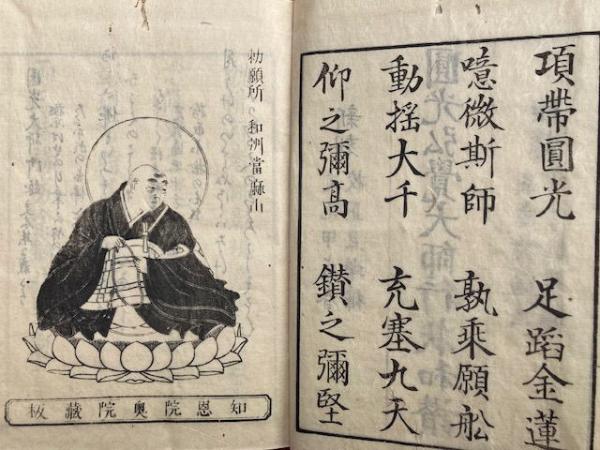 項帶圓光 足蹈金蓮
噫微斯師 孰乘願舩
動揺大千 充塞九天
仰之彌高 鑚之彌堅
勅願所 和洲當麻山
知恩院奥院藏板